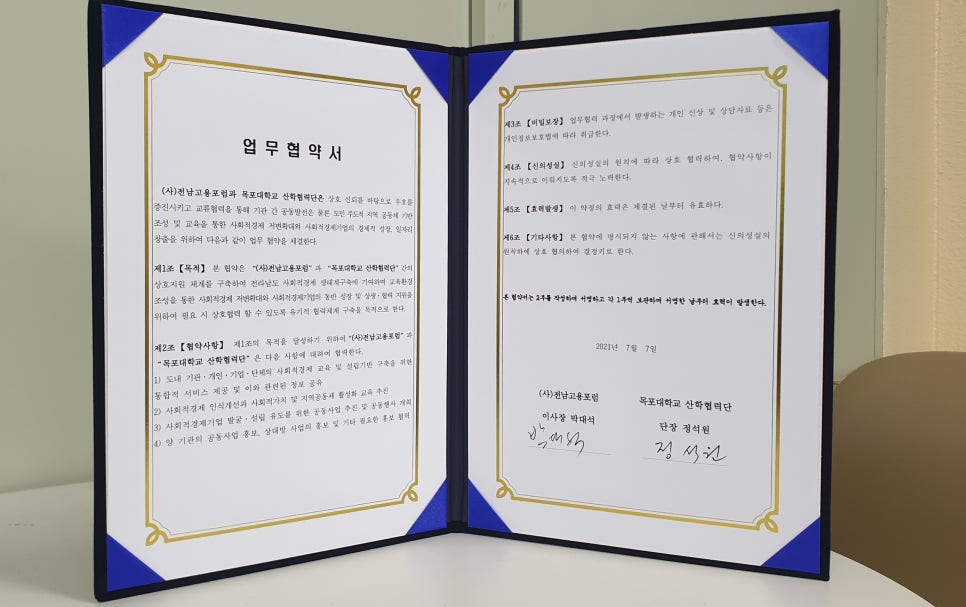 업무협약서
(사)전남고용포럼과 목포대학교 산학협력단은 상호 신뢰를 바탕으로 우호를
증진시키고 교류협력을 통해 기관 간 공동발전은 물론 도민 주도적 지역 공동체 기반
조성 및 교육을 통한 사회적경제 저변확대와 사회적경제기업의 경제적 성장, 일자리
창출을 위하여 다음과 같이 업무 협약을 체결한다.
제1조【목적】 본 협약은 “(사)전남고용포럼”과 “목포대학교 산학협력단” 간의
상호지원 체계를 구축하여 전라남도 사회적경제 생태계구축에 기여하며 교육환경
조성을 통한 사회적경제 저변확대와 사회적경제기업의 동반 성장 및 상생·협력 지원을
위하여 필요 시 상호협력 할 수 있도록 유기적 협력체계 구축을 목적으로 한다.
제2조【협약사항】 제1조의 목적을 달성하기 위하여 “(사)전남고용포럼”과
“목포대학교 산학협력단”은 다음 사항에 대하여 협력한다.
1) 도내 기관·개인·기업·단체의 사회적경제 교육 및 설립기반 구축을 위한
통합적 서비스 제공 및 이와 관련된 정보 공유
2) 사회적경제 인식개선과 사회적가치 및 지역공동체 활성화 교육 추진
3) 사회적경제기업 발굴·설립 유도를 위한 공동사업 추진 및 공동행사 개최
4) 양 기관의 공동사업 홍보, 상대방 사업의 홍보 및 기타 필요한 홍보 협력
제3조【비밀보장】 업무협력 과정에서 발생하는 개인 신상 및 상담자료 등은
개인정보보호법에 따라 취급한다.
제4조【신의성실】 신의성실의 원칙에 따라 상호 협력하여, 협약사항이
지속적으로 이뤄지도록 적극 노력한다.
제5조【효력발생】 이 약정의 효력은 체결된 날부터 유효하다.
제6조【기타사항】 본 협약에 명시되지 않는 사항에 관해서는 신의성실의
원칙하에 상호 협의하여 결정키로 한다.
본 협약서는 2부를 작성하여 서명하고 각 1부씩 보관하며 서명한 날부터 효력이 발생한다.
2021년 7월 7일
(사)전남고용포럼
이사장 박대석
박대석
목포대학교 산학협력단
단장 정석원
정석원